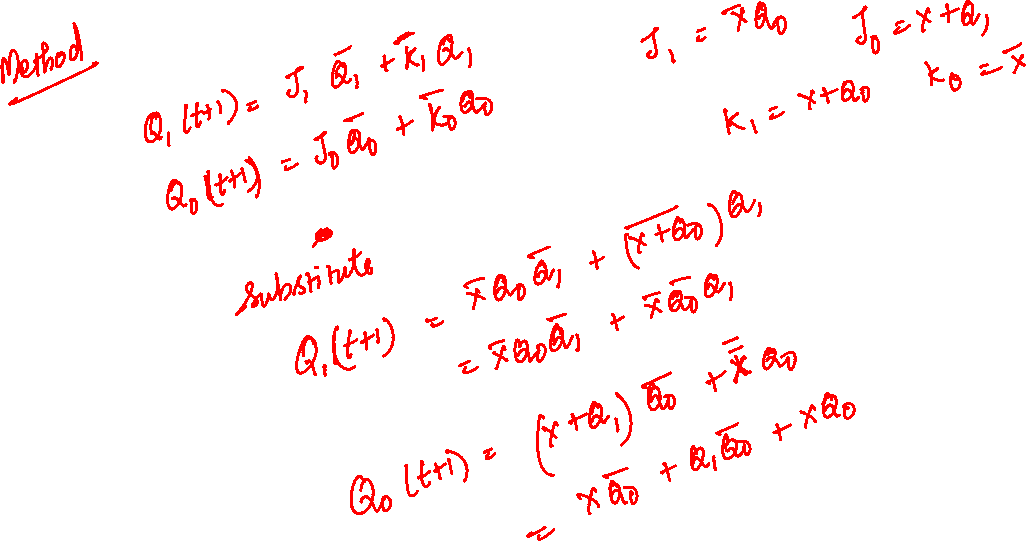 Method
Q₁(t+1) = J₁ Q̅₁ + K̅₁ Q₁
Q₀(t+1) = J₀ Q̅₀ + K̅₀ Q₀
J₁ = x̅ Q₀ J₀ = x + Q₁
K₁ = x + Q₀ K₀ = x̅
Substitute
Q₁(t+1) = x̅ Q₀ Q̅₁ + (x̅ ̅+̅ ̅Q̅₀) Q₁
= x̅ Q₀ Q̅₁ + x̅ Q̅₀ Q₁
Q₀(t+1) = (x + Q₁) Q̅₀ + x̿ Q₀
= x Q̅₀ + Q₁ Q̅₀ + x Q₀